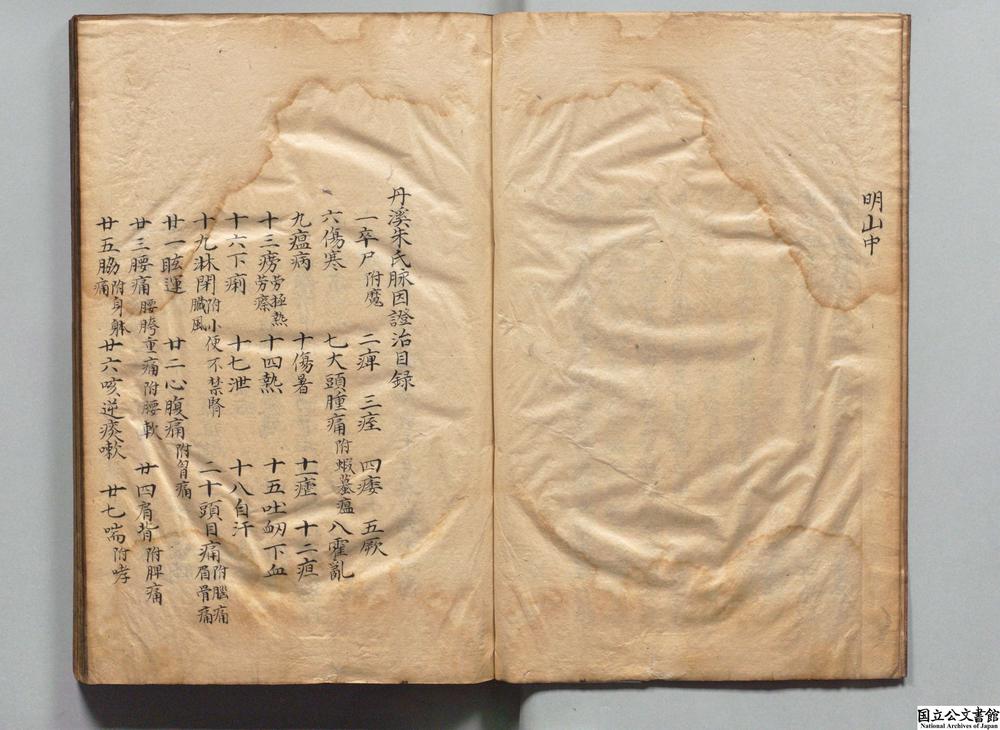 明山中
丹溪朱氏脉因證治目録
一卒尸附魔 二痺 三痓 四痿 五厥
六傷寒 七大頭腫痛附蝦蟇瘟 八霍亂
九瘟病 十傷暑 十一瘧 十二疸
十三痨劳極热劳瘵 十四熱 十五吐衂下血
十六下痢 十七泄 十八自汗
十九淋閉附小便不禁腎臓風 二十頭目痛附腦痛眉骨痛
廿一眩運 廿二心腹痛附胃痛
廿三腰痛腰胯重痛附腰軟 廿四肩背附脾痛
廿五脇痛附身躰 廿六咳逆痰嗽 廿七喘附哮
国立公文書館
National Archives of Japan